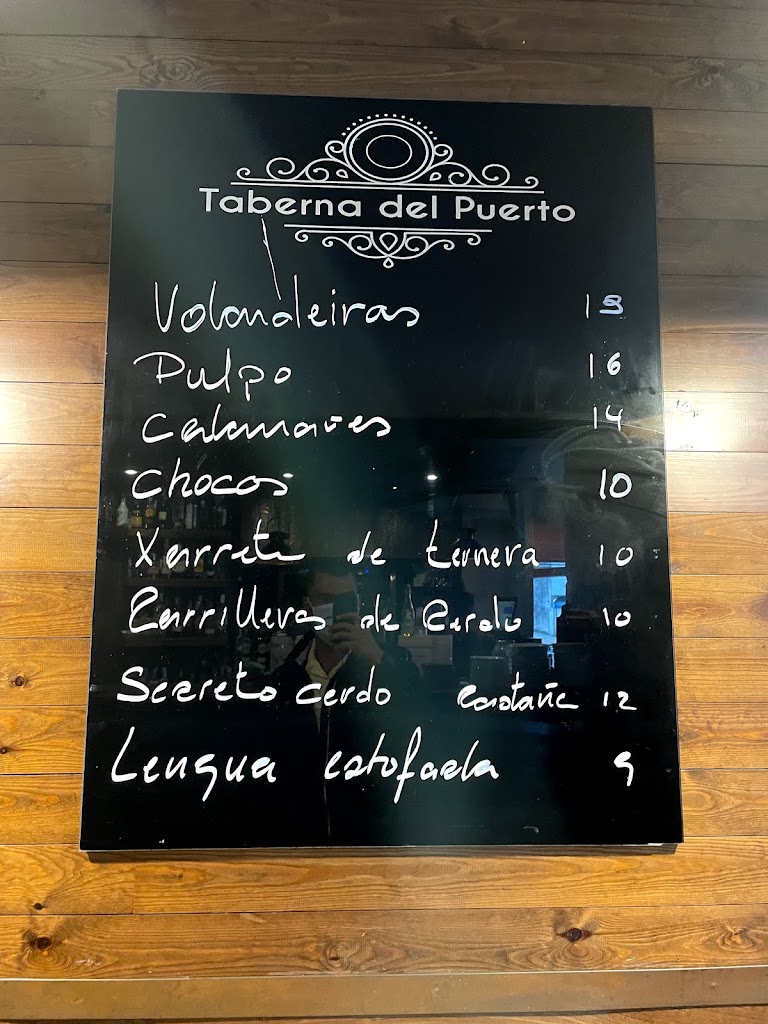 Taberna del Puerto
Volandeiras 19
Pulpo 16
Calamares 14
Chocos 10
Xarrete de ternera 10
Carrilleras de Cerdo 10
Secreto cerdo castaña 12
Lengua estofada 9